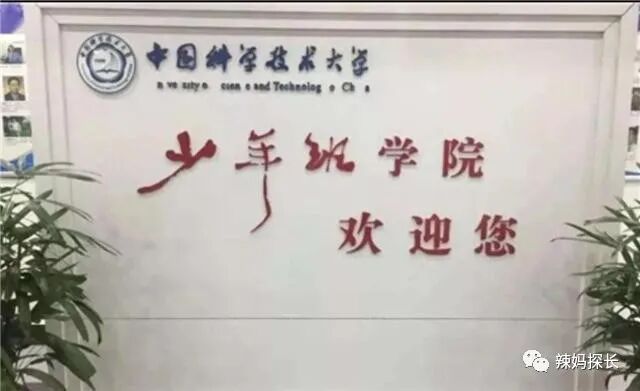 中国科学技术大学
n ve  s ty o   cien  e and Technolog  o  Ch  a
少年班学院
欢迎您
辣妈探长